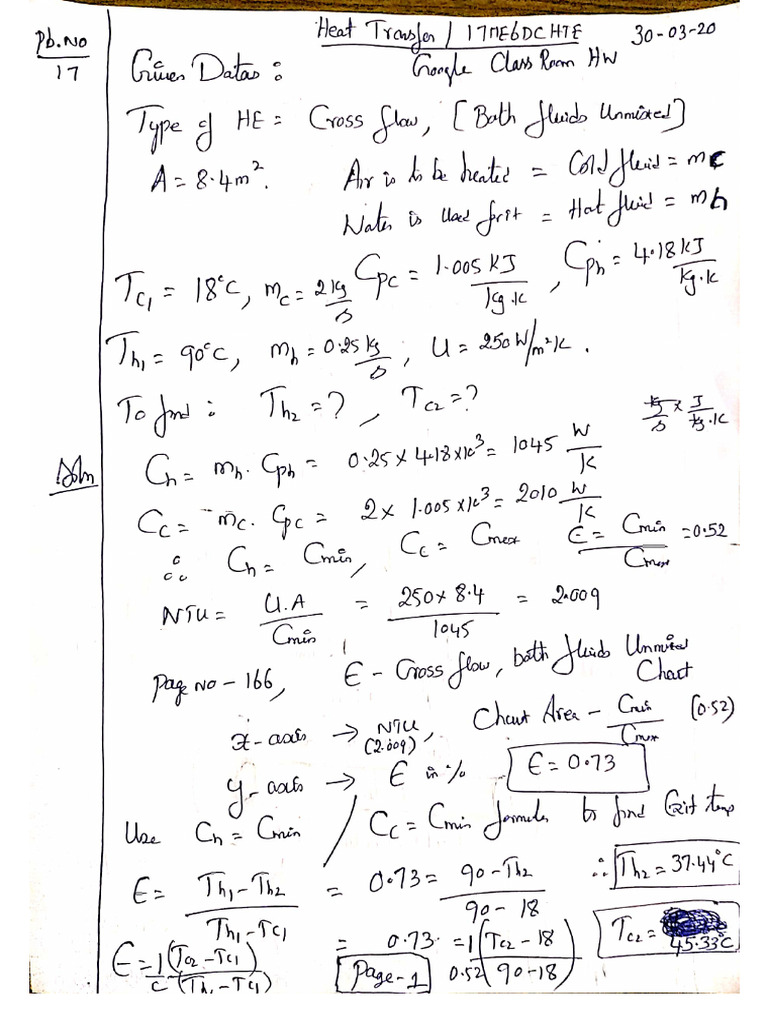 Heat Transfer / 17ME6DCHTE 30-03-20
Pb.No Google Class Room HW
17 Given Datas :
Type of HE = Cross flow, [Both fluids Unmixed]
A = 8.4 m². Air is to be heated = Cold fluid = mc
Water is used for it = Hot fluid = mh
Tc₁ = 18°C, mc = 2 kg/s Cpc = 1.005 KJ/kg.K, Cph = 4.18 KJ/kg.K
Th₁ = 90°C, mh = 0.25 kg/s, U = 250 W/m²K.
To find : Th₂ = ?, Tc₂ = ? kg/s × J/kg.K
Soln Ch = mh. Cph = 0.25 × 4.18 × 10³ = 1045 W/K
Cc = mc. Cpc = 2 × 1.005 × 10³ = 2010 W/K
∴ Ch = Cmin, Cc = Cmax C = Cmin/Cmax = 0.52
NTU = U.A/Cmin = 250 × 8.4/1045 = 2.009
Page No - 166, ε - Cross flow, both fluids Unmixed
Chart
x-axis → NTU (2.009), Chart Area - Cmin/Cmax (0.52)
y-axis → ε in % ε = 0.73
Use Ch = Cmin / Cc = Cmin formula to find Exit temp
ε = Th₁ - Th₂/Th₁ - Tc₁ = 0.73 = 90 - Th₂/90 - 18 ∴ Th₂ = 37.44°C
ε = 1/C (Tc₂ - Tc₁/Th₁ - Tc₁) = 0.73 = 1/0.52 (Tc₂ - 18/90 - 18) Tc₂ = 45.33°C
Page-1